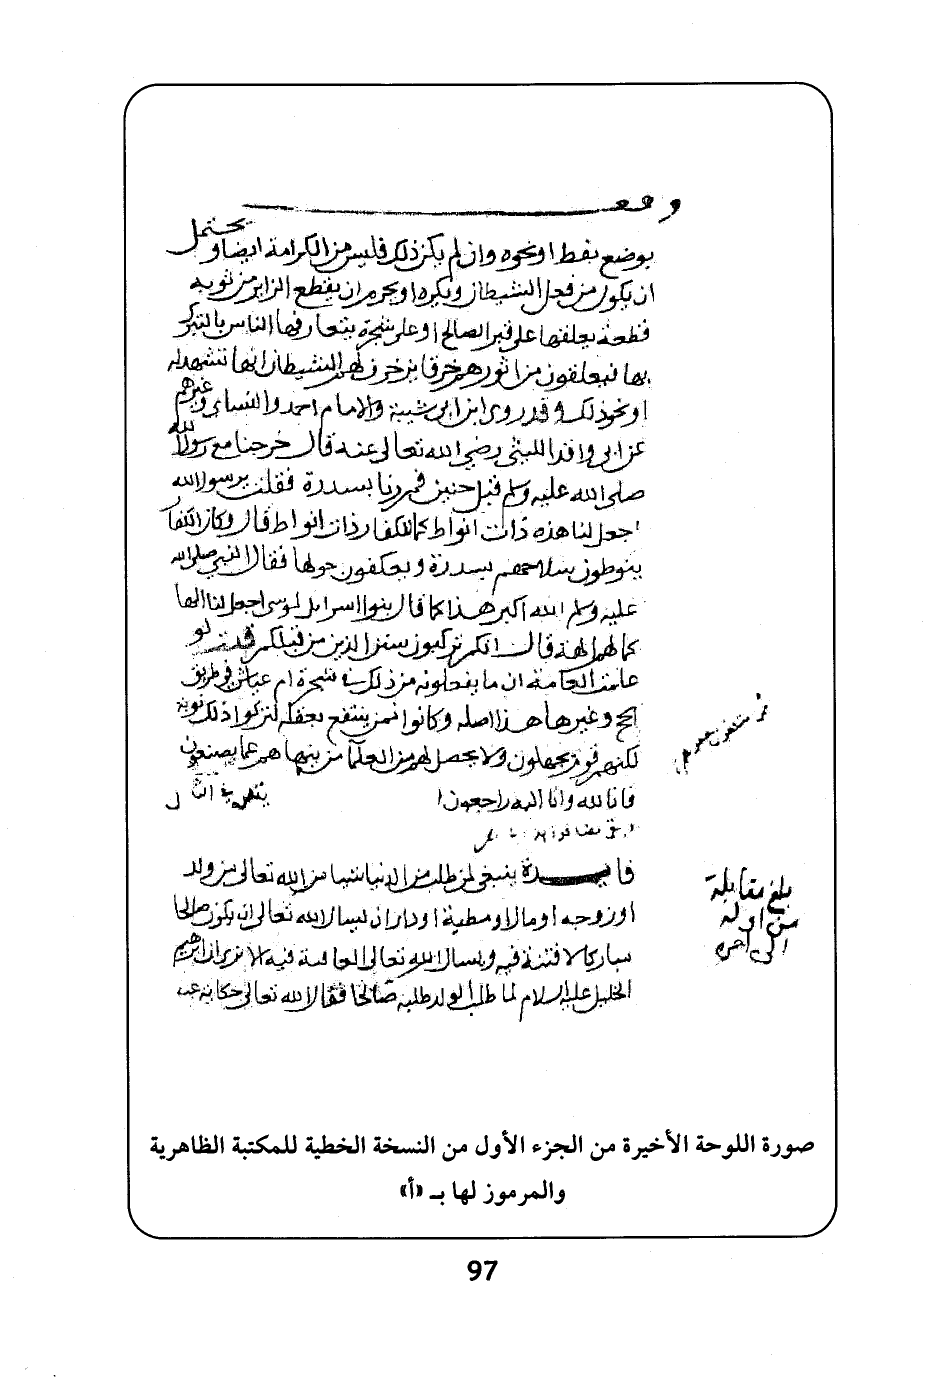 يوضع نقط او نحوه وان لم يكن ذلك فليس من الكرامة ايضا و يحتمل
ان يكون من فعل الشيطان ويكره او يحرم ان يقطع الزاير من ثوبه
قطعة يعلقها على قبر الصالح او على شجرة يتعارفها الناس بالتبرك
بها فيعلقون من اثورهم خرقا يزخرف لهم الشيطان انها تشهد له
او نحو ذلك وقد روى ابن ابى شيبة والامام احمد والنساى وغيرهم
عن ابى واقد الليثى رضى الله تعالى عنه قال خرجنا مع رسول الله
صلى الله عليه وسلم قبل حنين فمررنا بسدرة فقلت يرسول الله
اجعل لنا هذه ذات انواط كما للكفار ذات انواط قال وكان الكفار
ينوطون سلاحهم بسدرة و يعكفون حولها فقال النبى صلى الله
عليه وسلم الله اكبر هذا كما قال بنوا اسرايل لموسى اجعل لنا الها
كما لهم الهة قال انكم تركبون سنن الذين من قبلكم لو
علمت العامة ان ما يفعلونه من ذلك فى شجرة ام عياش فى طريق
الحج وغيرها هذا اصله وكانوا ممن ينتفع بعقله لتركوا ذلك
لكنهم قوم يجهلون ولا يحصل لهم من العلما من ينهاهم عما يصنعون
فانا لله وانا اليه راجعون
فايدة ينبغى لمن طلب من الدنيا شيا من الله تعالى من ولد
او زوجه او مال او مطية او دار ان يسال الله تعالى ان يكون صالحا
مباركا لا فتنة فيه ويسال الله تعالى العافية فيه لا ترى ان ابرهيم
الخليل عليه السلام لما طلب الولد طلبه صالحا فقال الله تعالى حكاية عنه
بلغ مقابلة
من اوله
الى اخره
صورة اللوحة الأخيرة من الجزء الأول من النسخة الخطية للمكتبة الظاهرية
والمرموز لها بـ «أ»
97